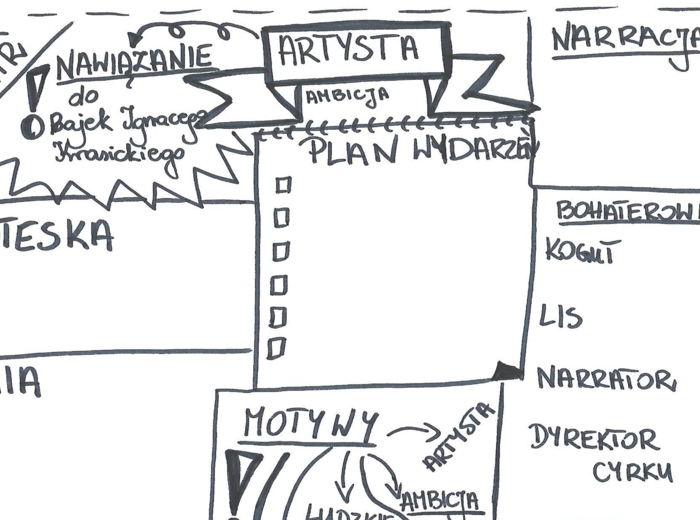 NAWIĄZANIE
do
Bajek Ignacego
Krasickiego
ARTYSTA
AMBICJA
NARRACJA
PLAN WYDARZEŃ
TESKA
BOHATEROWI
KOGUT
LIS
NARRATOR
DYREKTOR
CYRKU
IA
MOTYWY
ARTYSTA
AMBICJA
LUDZKIE